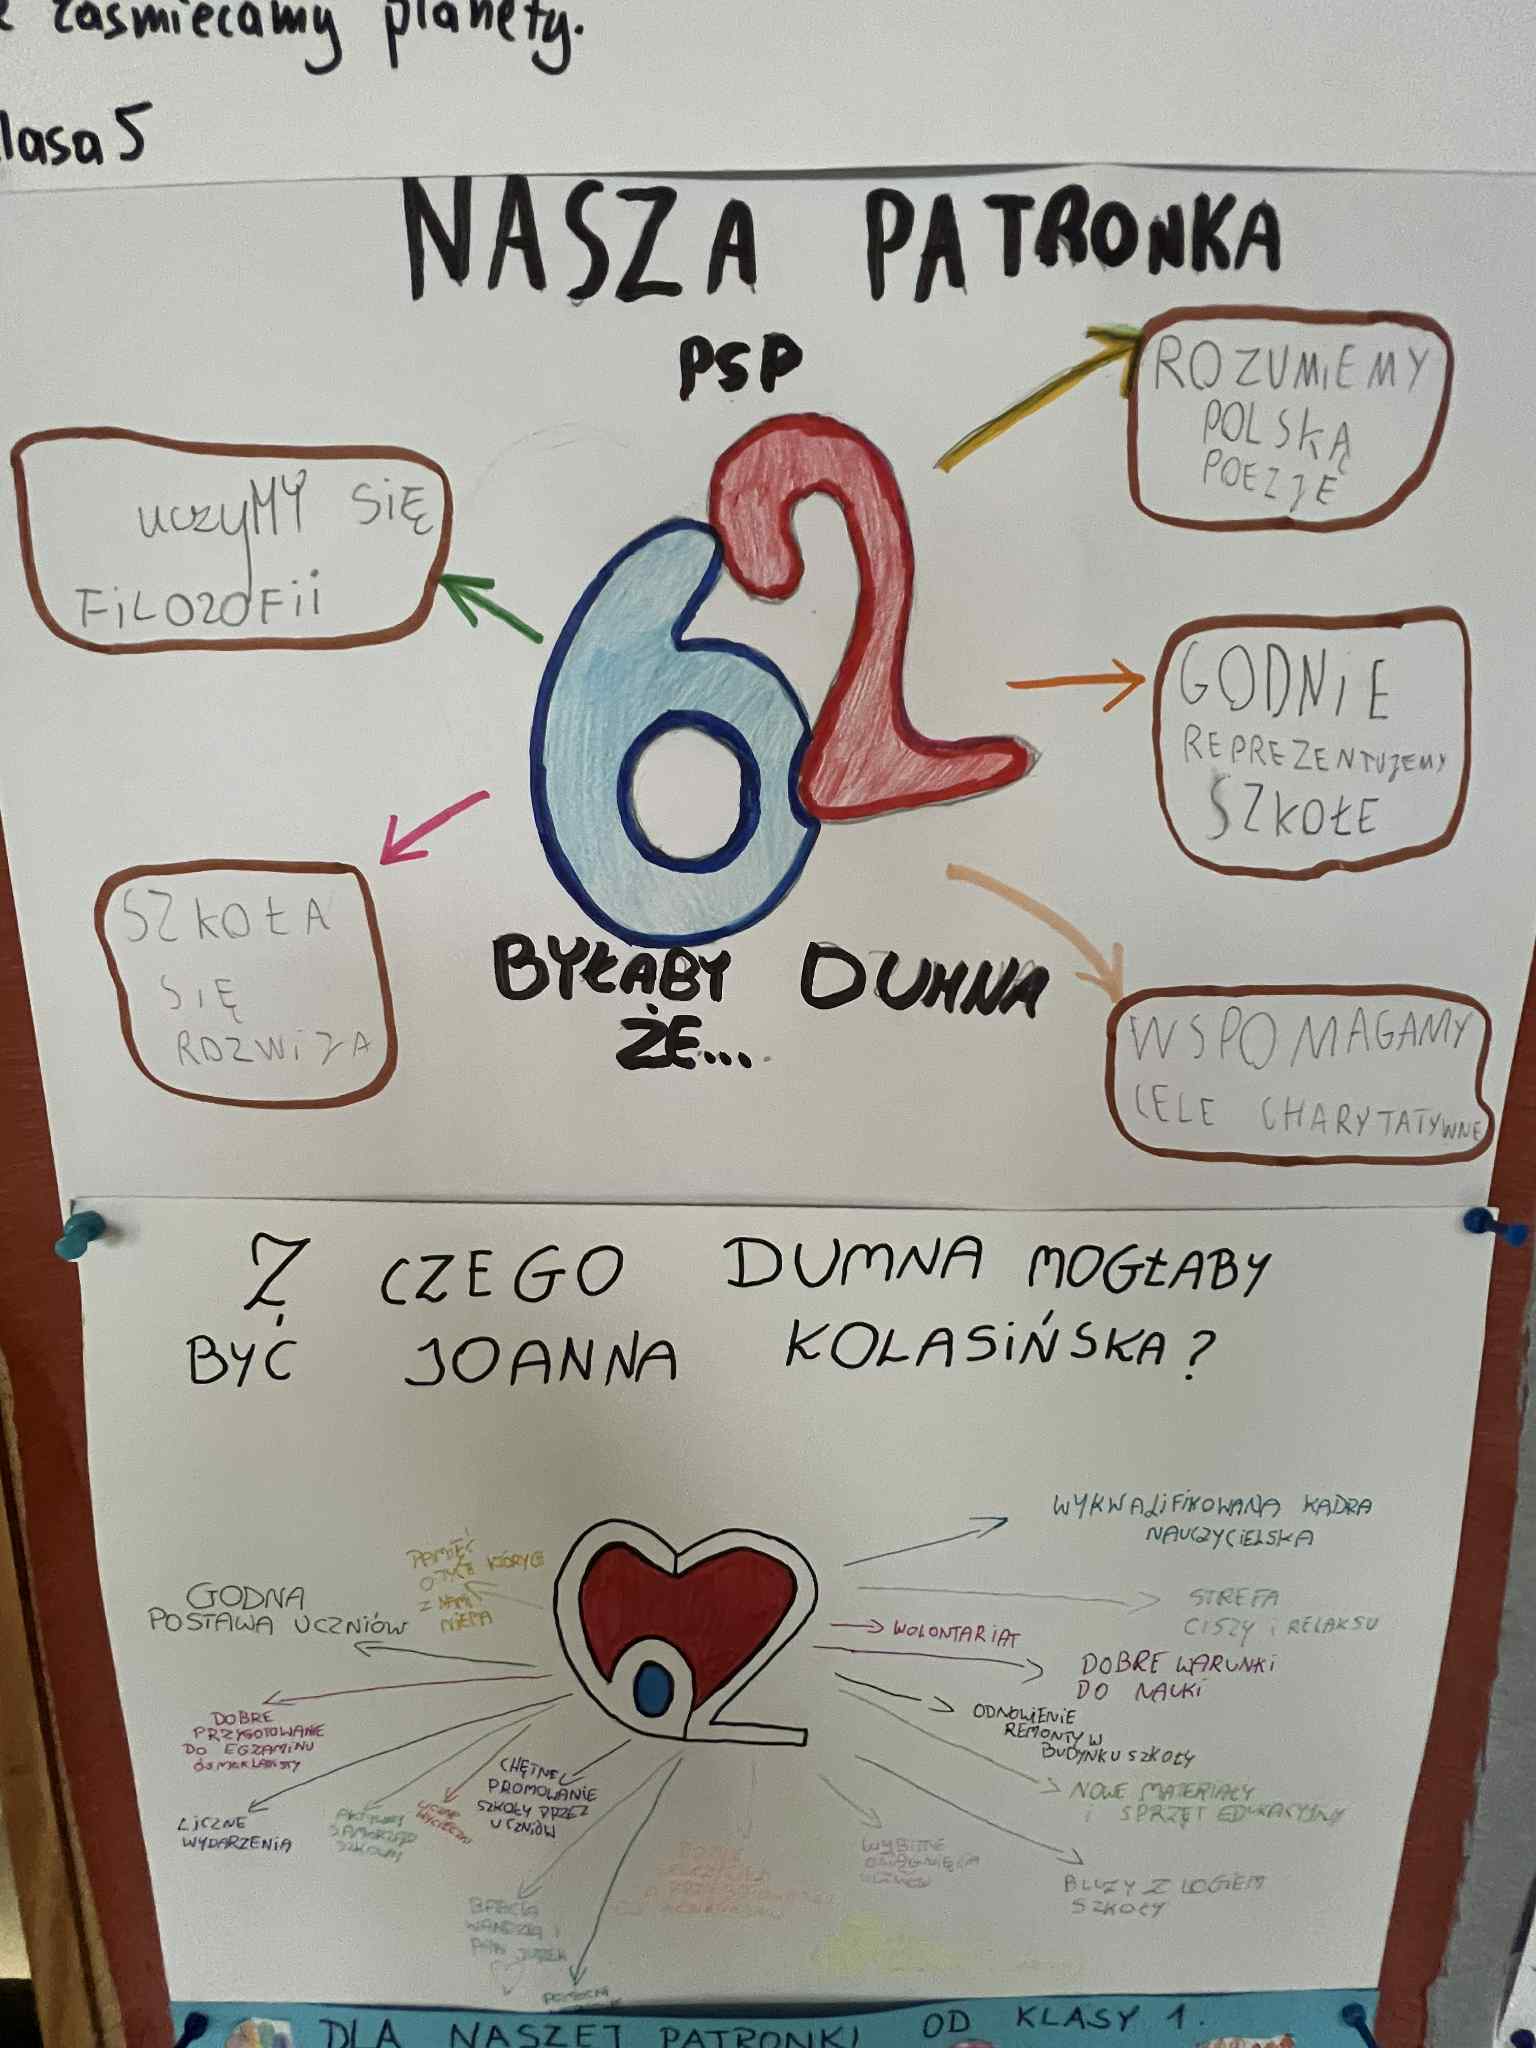 zaśmiecamy planety.
klasa 5
NASZA PATRONKA
PSP
62
BYŁABY DUMNA
ŻE...
ROZUMIEMY
POLSKĄ
POEZJĘ
uczyMY SIĘ
FILOZOFII
GODNIE
REPREZENTUJEMY
SZKOŁE
SZKOŁA
SIĘ
ROZWIJA
WSPOMAGAMY
CELE CHARYTATYWNE
Z CZEGO DUMNA MOGŁABY
BYĆ JOANNA KOLASIŃSKA?
WYKWALIFIKOWANA KADRA
NAUCZYCIELSKA
PAMIĘĆ
O TYCH KTÓRYCH
Z NAMI
NIEMA
GODNA
POSTAWA UCZNIÓW
STREFA
CISZY i RELAKSU
WOLONTARIAT
DOBRE WARUNKI
DO NAUKI
ODNOWIENIE
REMONTY W
BUDYNKU SZKOŁY
DOBRE
PRZYGOTOWANIE
DO EGZAMINU
ósmoklasisty
CHĘTNE
PROMOWANIE
SZKOŁY PRZEZ
UCZNIÓW
NOWE MATERIAŁY
i SPRZĘT EDUKACYJNY
LICZNE
WYDARZENIA
AKTYWNY
SAMORZĄD
SZKOLNY
LICZNE
WYCIECZKI
WYBITNE
OSIĄGNIĘCIA
UCZNIÓW
BLUZY Z LOGIEM
SZKOŁY
BABCIA
WANDZIA i
PAN JUREK
DLA NASZEJ PATRONKI OD KLASY 1.